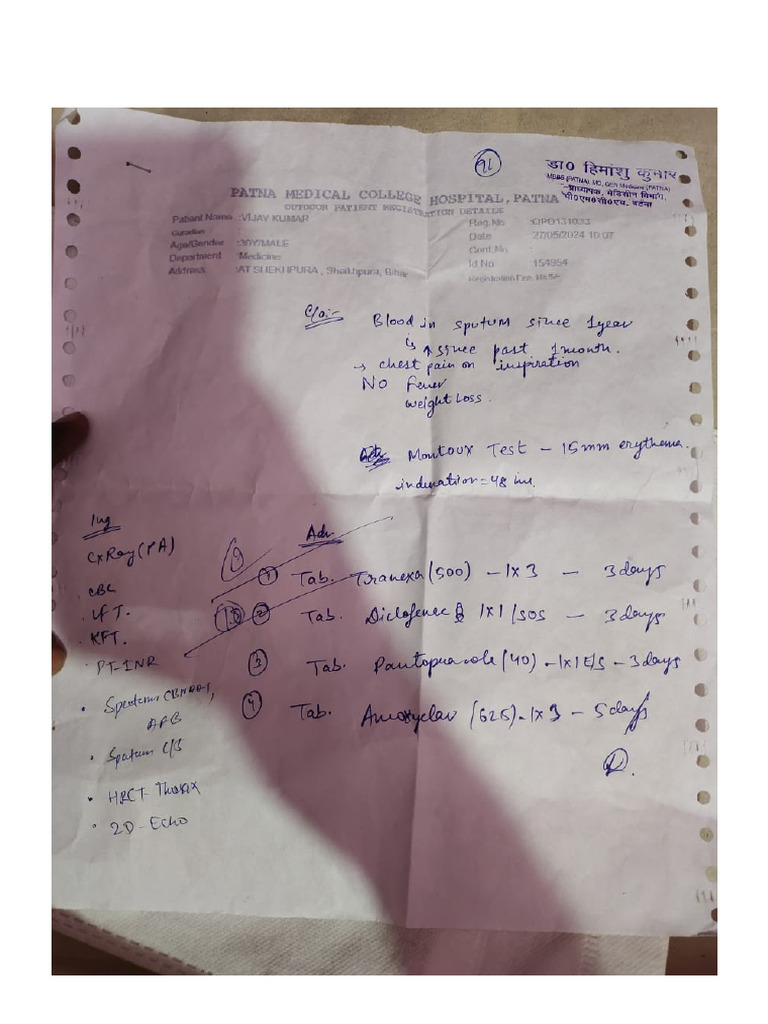 91
डा0 हिमांशु कुमार
MBBS (PATNA), MD, GEN Medicine (PATNA)
प्राध्यापक, मेडिसीन विभाग,
पी०एम०सी०एच०, पटना
PATNA MEDICAL COLLEGE HOSPITAL, PATNA
OUTDOOR PATIENT REGISTRATION DETAILS
Patient Name :VIJAY KUMAR
Reg.No
Guradian :
Date 27/05/2024 10:07
Age/Gender :30Y/MALE
Cont.No
Department :Medicine
Id No :154954
Address :AT SHEKHPURA , Shaikhpura, Bihar
Registration Fee
C/o:-
Blood in sputum since 1 year
is ↑ since past 1 month.
→ chest pain on inspiration
No Fever
weight Loss.
Montoux Test – 15 mm erythema.
induration = 48 hr.
Inv
CxRay (PA)
CBC
LFT.
KFT.
PT-INR
Sputum
AFB
Sputum C/S
HRCT-Thorax
2D-Echo
Adv
1 Tab. Tranexa (500) – 1x3 – 3 days
2 Tab. Diclofenec 1x1/SOS – 3 days
3 Tab. Pantoprazole (40) – 1x1 E/S – 3 days
4 Tab. Amoxyclav (625) – 1x3 – 5 days